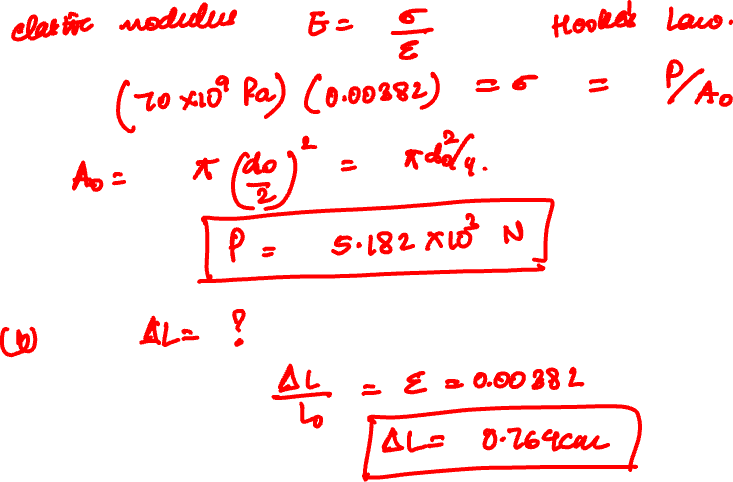 elastic modulus E = σ/ε Hooke's Law.
(70 x10⁹ Pa) (0.00382) = σ = P/A₀
A₀ = π (d₀/2)² = πd₀²/4.
P = 5.182 x10³ N
(b) ΔL = ?
ΔL/L₀ = ε = 0.00382
ΔL = 0.764cm